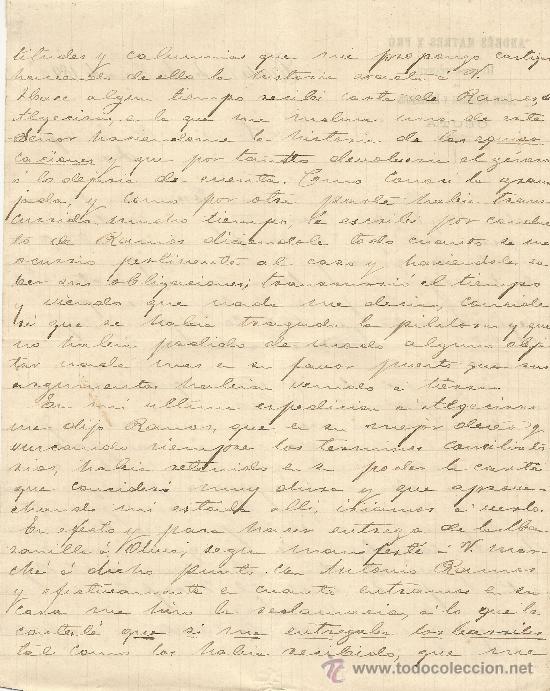 titudes y calumnias que me propongo castigar
haciendo de ello la historia exacta á V.
Hace algun tiempo recibi carta de Ramos, de
Algeciras, a la que me incluia una de este
Señor haciendome la historia de las equivo
caciones y que por tanto devolveria el género
ó lo dejaria de cuenta. Como conoci la
y como por otra parte habia trans
currido mucho tiempo, le escribi por conduc
to de Ramos diciendole todo cuanto se me
ocurrio pertinente al caso y haciendole sa
ber sus obligaciones; transcurrió el tiempo
y viendo que nada me decia, conside
ré que se habia tragado la pildora y que
no habia podido de modo alguno obje
tar nada mas en su favor puesto que sus
argumentos habian venido a tierra.
En mi ultima expedicion á Algeciras
me dijo Ramos, que en su mejor deseo y
buscando siempre los terminos conciliato
rios, habia retenido en su poder la carta
que consideró muy dura y que aprove
chando mi estada alli, iriamos a verlo.
En efecto y para hacer entrega de la
á Oliva, segun manifesté á V. mar
ché á dicho punto con Antonio Ramos
y efectivamente en cuanto entramos en su
casa me hizo la reclamacion, á lo que le
contesté que si me entregaba los barriles
tal como los habia recibido, que me
www.todocoleccion.net